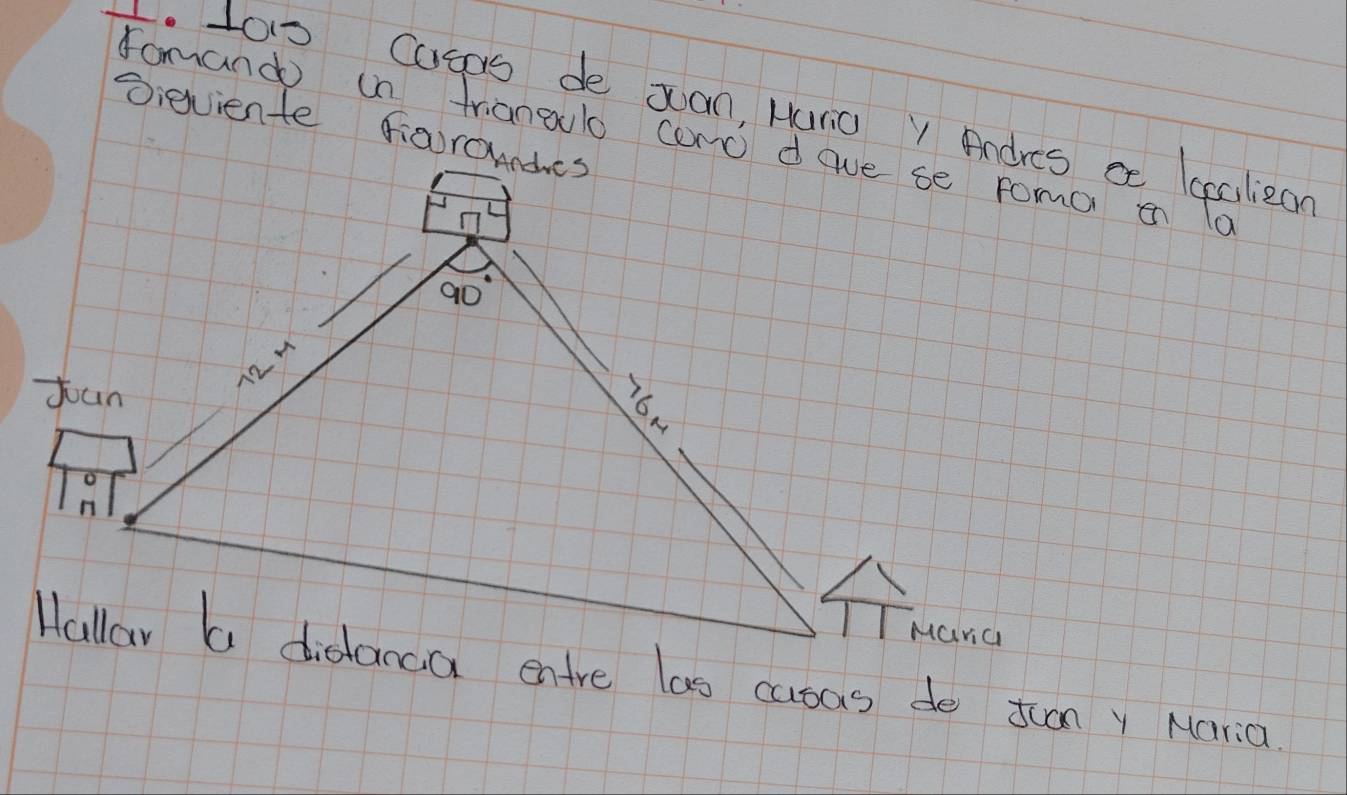 1. Las Casas de Juan, Maria y Andres se localizan
Fomando un triangulo como el que se Foma en la
Siguiente figura
Andres
90°
12 M
16 M
Juan
Maria
Hallar la distancia entre las casas de Juan y Maria.